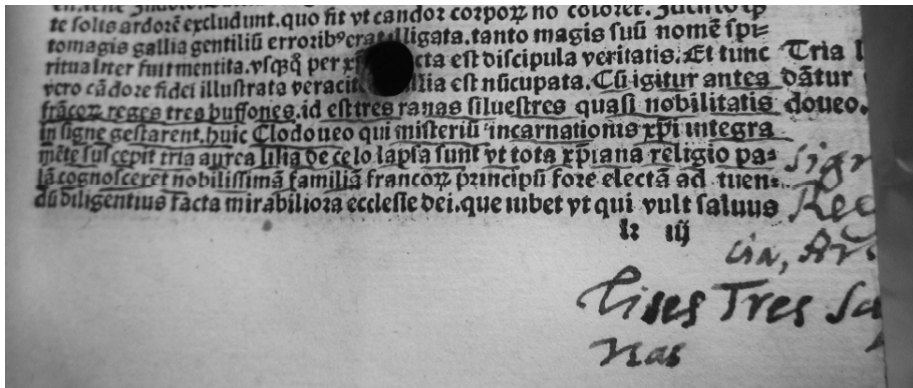 te solis ardorē excludunt. quo fit vt candor corporꝝ no coloret.
tomagis gallia gentiliū erroribꝰ erat illigata. tanto magis suū nomē spi-
ritualiter fuit mentita. vsqꝫ per cta est discipula veritatis. Et tunc Tria
vero cādore fidei illustrata est nūcupata. Cū igitur antea dātur
frācoꝝ reges tres buffones. id est tres ranas siluestres quasi nobilitatis doueo.
in signe gestarent. huic Clodoueo qui misteriū incarnationis xp̄i integra
mēte suscepit tria aurea lilia de celo lapsa sunt vt tota xp̄iana religio pa-
lā cognosceret nobilissimā familiā francoꝝ principū fore electā ad tuen-
dū diligentius facta mirabiliora ecclesie dei. que iubet vt qui vult saluus
k iij
Tres
nas